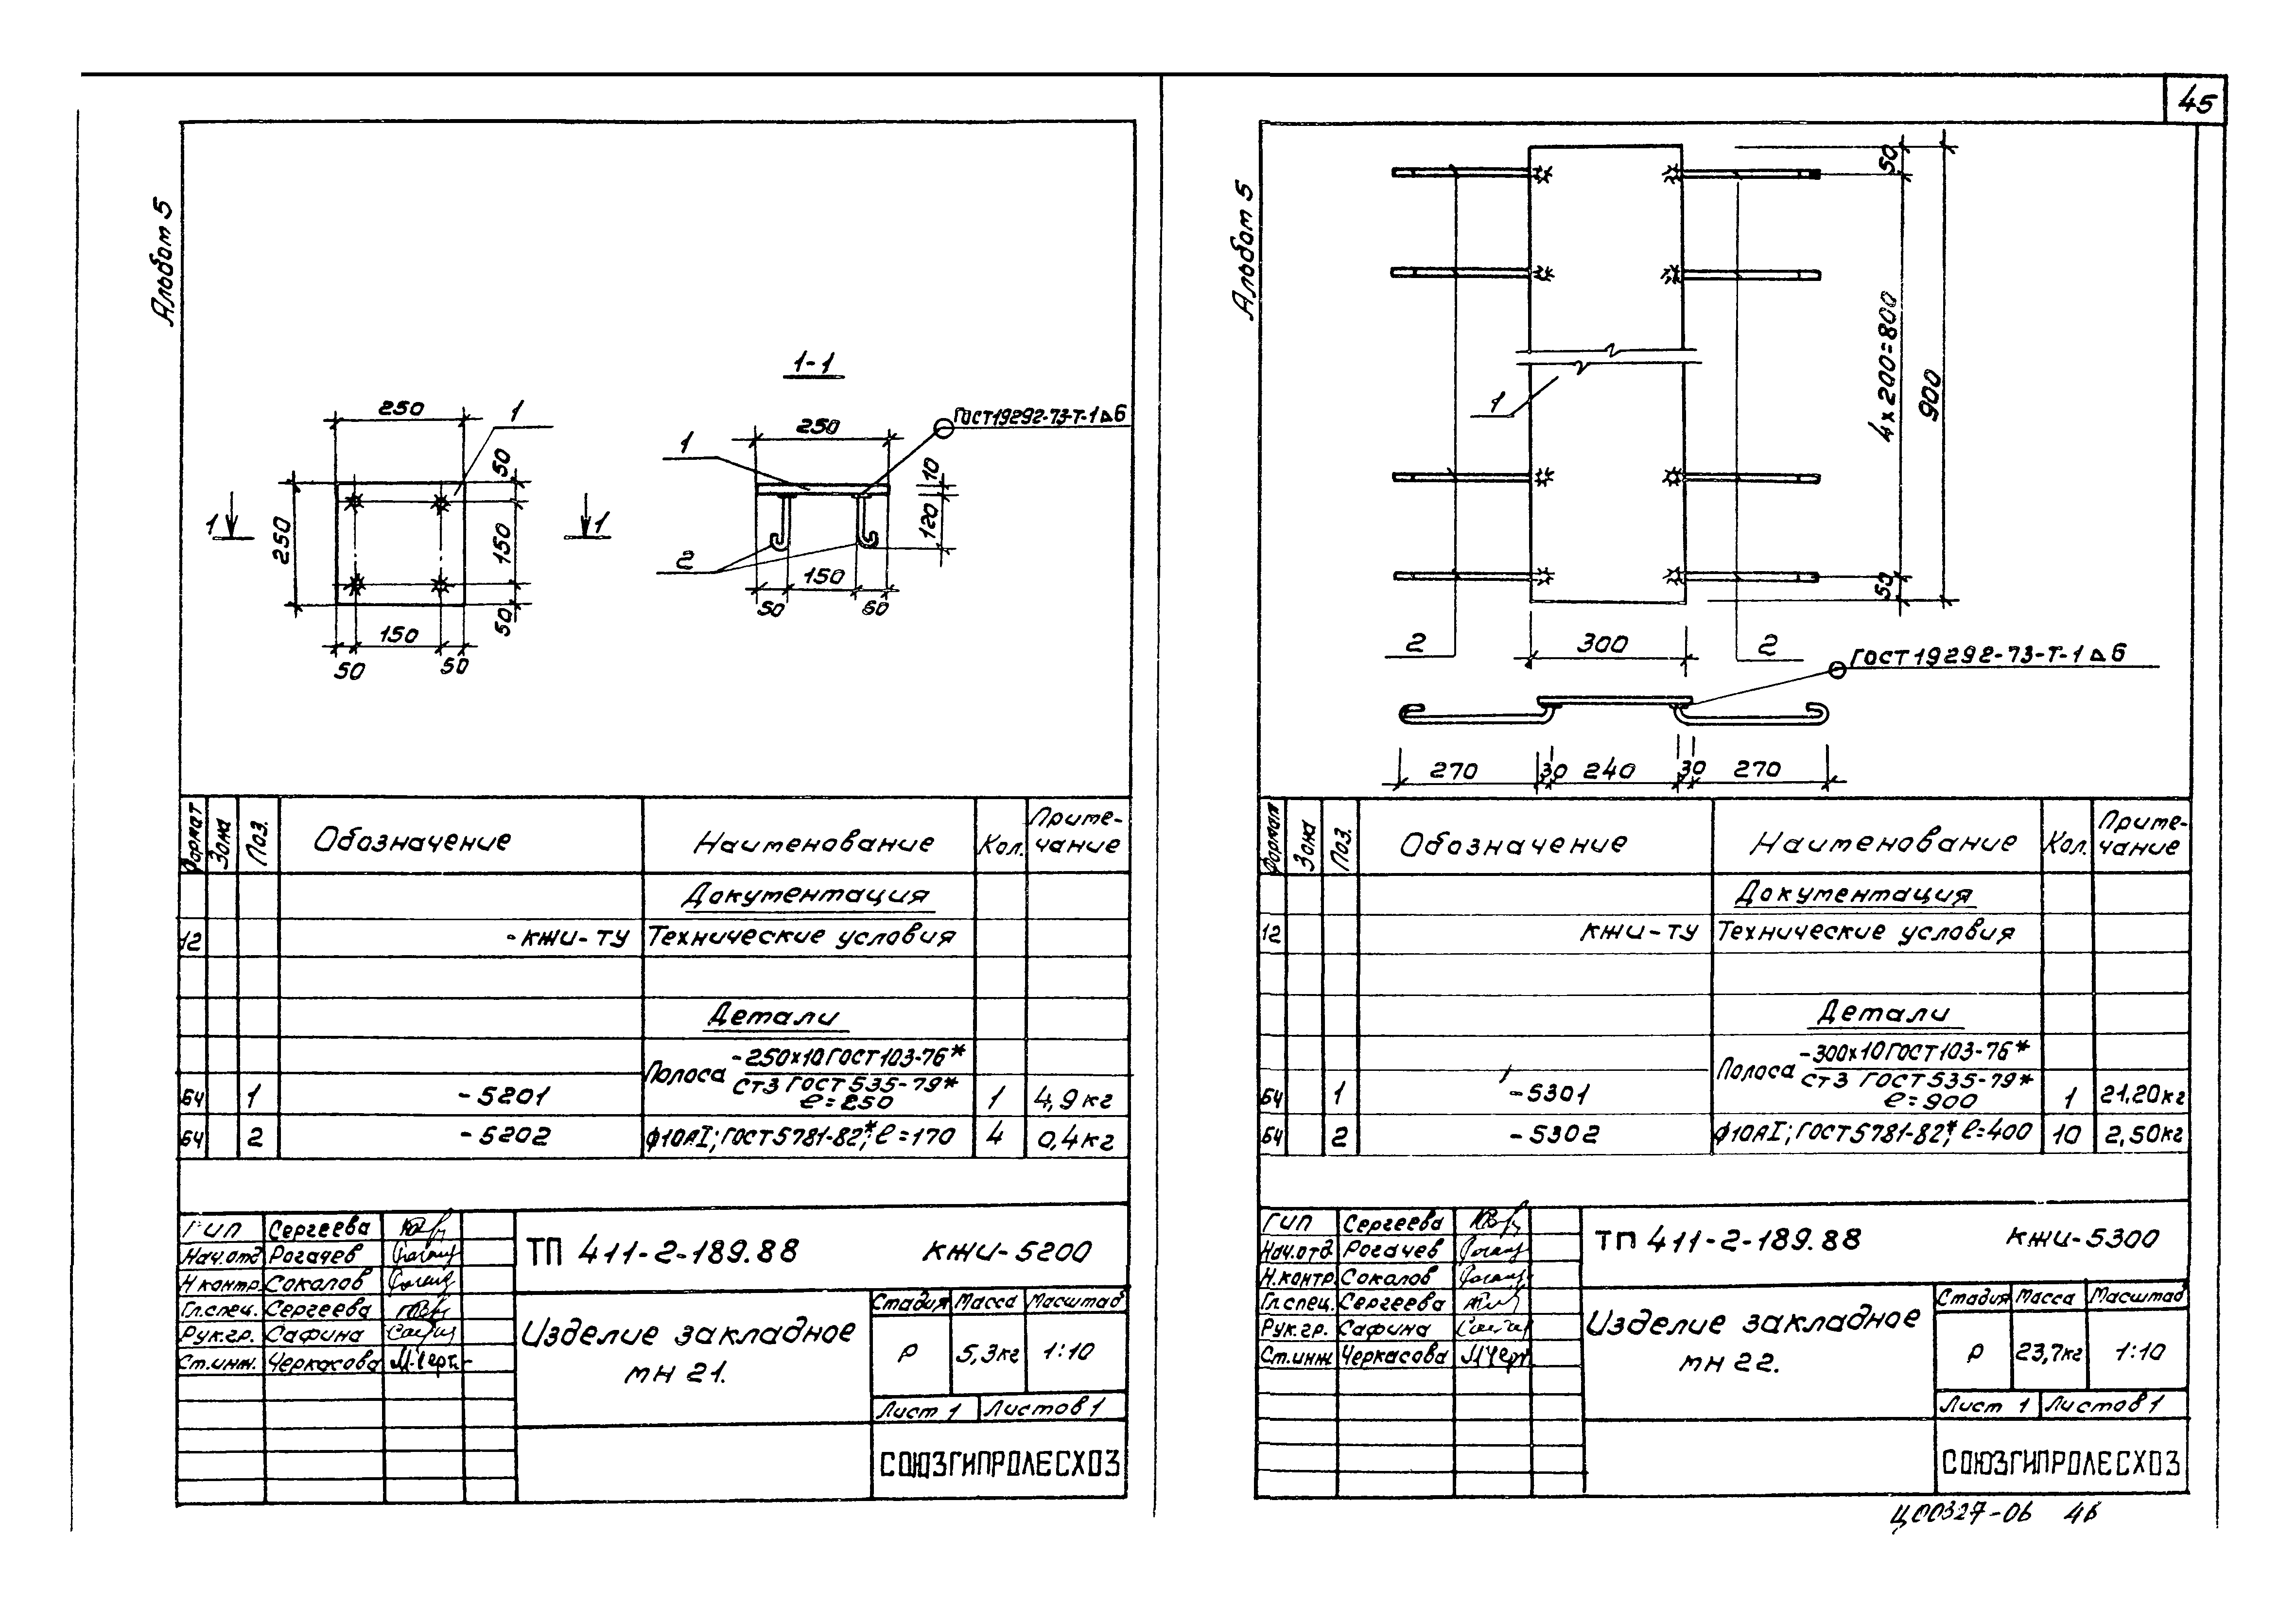 45
Альбом 5
1-1
250
1
50
250
150
50
1
1
150
50
50
ГОСТ19292-73-Т-1 ⊿6
250
1
10
120
2
150
50
60
Формат Зона Поз. Обозначение Наименование Кол. Приме-
чание
Документация
12 -КЖИ-ТУ Технические условия
Детали
Полоса -250х10 ГОСТ 103-76*
Ст3 ГОСТ 535-79*
БЧ 1 -5201 ℓ=250 1 4,9кг
БЧ 2 -5202 ф10АI; ГОСТ 5781-82*, ℓ=170 4 0,4кг
ГИП Сергеева
Нач.отд Рогачев
Н контр. Соколов
Гл.спец. Сергеева
Рук.гр. Сафина
Ст.инж. Черкасова
ТП 411-2-189.88 КЖИ-5200
Изделие закладное
МН 21.
Стадия Масса Масштаб
Р 5,3кг 1:10
Лист 1 Листов 1
СОЮЗГИПРОЛЕСХОЗ
Альбом 5
50
4х200=800
900
50
1
2
300
2
ГОСТ 19292-73-Т-1 ⊿6
270 30 240 30 270
Формат Зона Поз. Обозначение Наименование Кол. Приме-
чание
Документация
12 КЖИ-ТУ Технические условия
Детали
Полоса -300х10 ГОСТ 103-76*
Ст3 ГОСТ 535-79*
БЧ 1 -5301 ℓ=900 1 21,20кг
БЧ 2 -5302 ф10АI; ГОСТ 5781-82*, ℓ=400 10 2,50кг
ГИП Сергеева
Нач.отд. Рогачев
Н.контр. Соколов
Гл.спец. Сергеева
Рук.гр. Сафина
Ст.инж Черкасова
ТП 411-2-189.88 КЖИ-5300
Изделие закладное
МН 22.
Стадия Масса Масштаб
Р 23,7кг 1:10
Лист 1 Листов 1
СОЮЗГИПРОЛЕСХОЗ
Ц00327-06 46